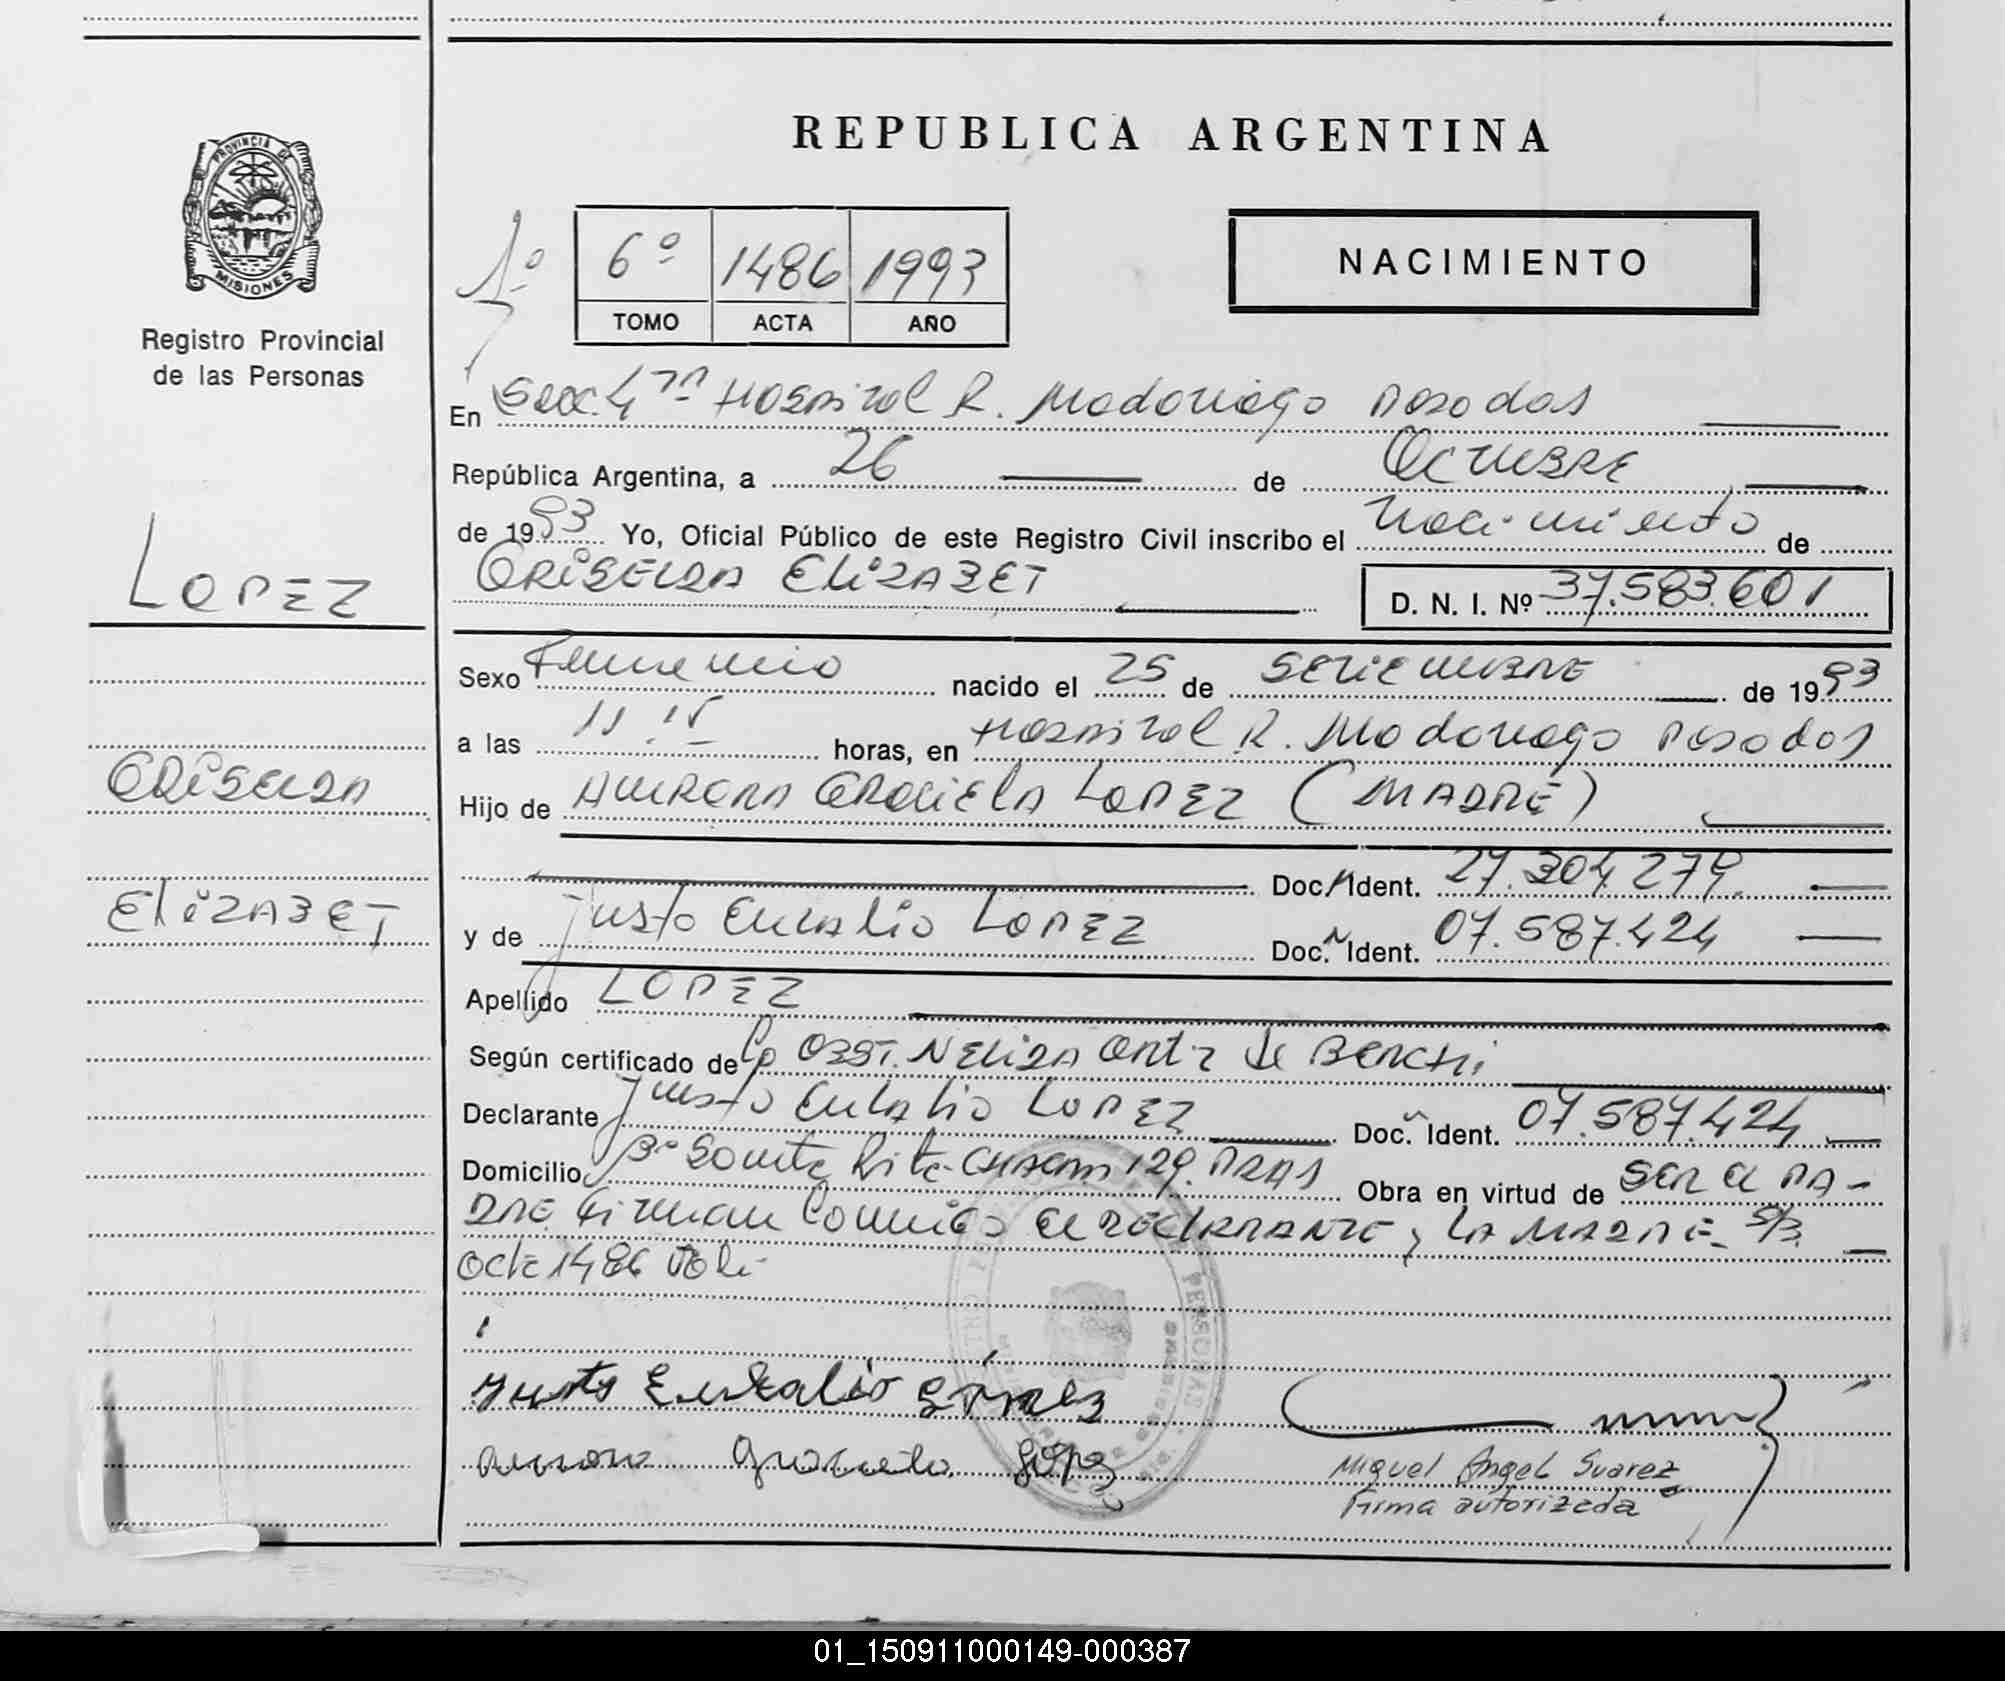 REPUBLICA ARGENTINA
PROVINCIA DE
MISIONES
Registro Provincial
de las Personas
1º
6º 1486 1993
TOMO ACTA AÑO
NACIMIENTO
En Secc. 4ta Hospital R. Madariaga Posadas
República Argentina, a 26 de Octubre
de 1993 Yo, Oficial Público de este Registro Civil inscribo el Nacimiento de
GRISELDA ELIZABET
D. N. I. Nº 37.583.601
LOPEZ
GRISELDA
ELIZABET
Sexo Femenino nacido el 25 de SETIEMBRE de 1993
a las 11.15 horas, en Hospital R. Madariaga Posadas
Hijo de AURORA GRACIELA LOPEZ (MADRE)
Doc. Ident. 27.304.279.
y de Justo Eulalio LOPEZ Doc. Ident. 07.587.424
Apellido LOPEZ
Según certificado de la OBST. NELIDA Ortiz de BENCHI
Declarante Justo Eulalio LOPEZ Doc. Ident. 07.587.424
Domicilio Bº Santa Rita Chacra 129. PDAS Obra en virtud de SER el PA-
DRE. Firman Conmigo el DECLARANTE y LA MADRE. S/R.
Acta 1486
Justo Eulalio
Aurora Graciela López
Miguel Angel Suarez
Firma autorizada
PERSONAS
01_150911000149-000387